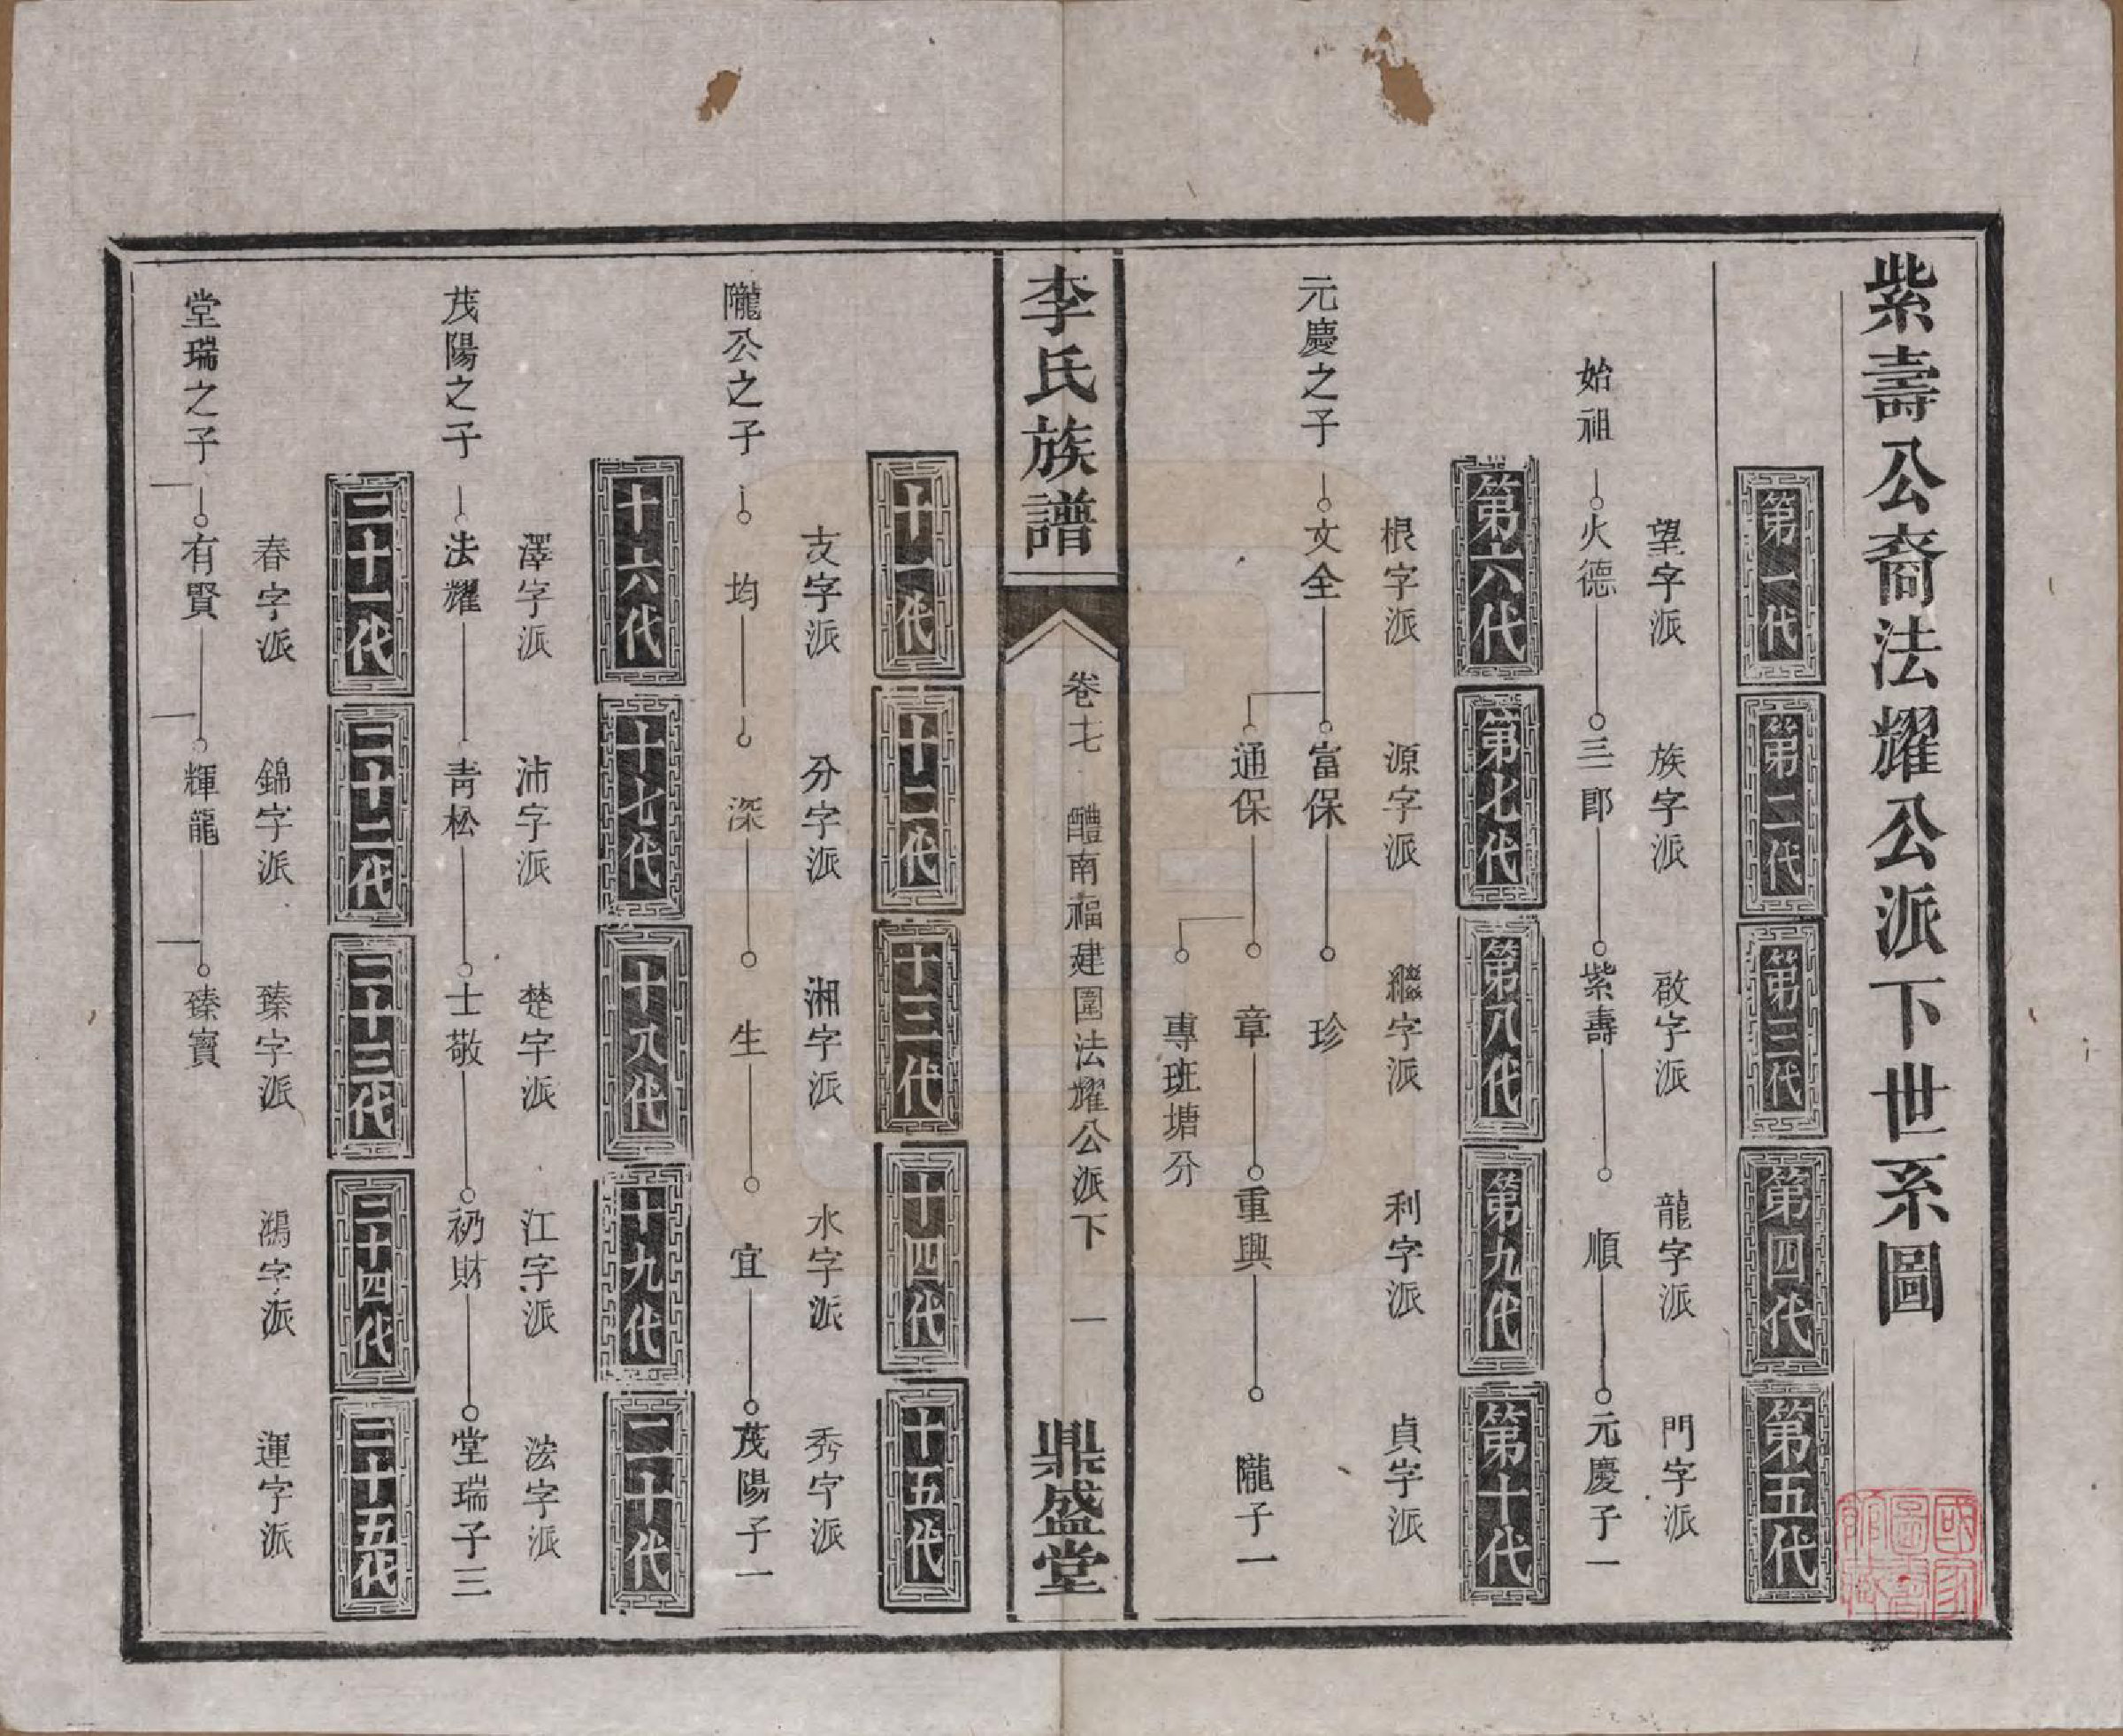 紫壽公裔法耀公派下世系圖
第一代
第二代
第三代
第四代
第五代
望字派
族字派
啟字派
龍字派
門字派
始祖
火德
三郎
紫壽
順
元慶子一
第六代
第七代
第八代
第九代
第十代
根字派
源字派
繼字派
利字派
貞字派
元慶之子
文全
富保
珍
通保
章
重興
隴子一
專班塘分
李氏族譜
卷十七
醴南福建圍法耀公派下
一
鼎盛堂
十一代
十二代
十三代
十四代
十五代
支字派
分字派
湘字派
水字派
秀字派
隴公之子
均
深
生
宜
茂陽子一
十六代
十七代
十八代
十九代
二十代
澤字派
沛字派
楚字派
江字派
法字派
茂陽之子
法耀
青松
士敬
礽財
堂瑞子三
二十一代
二十二代
二十三代
二十四代
二十五代
春字派
錦字派
臻字派
鴻字派
運字派
堂瑞之子
有賢
輝龍
臻寶
國家圖書館藏